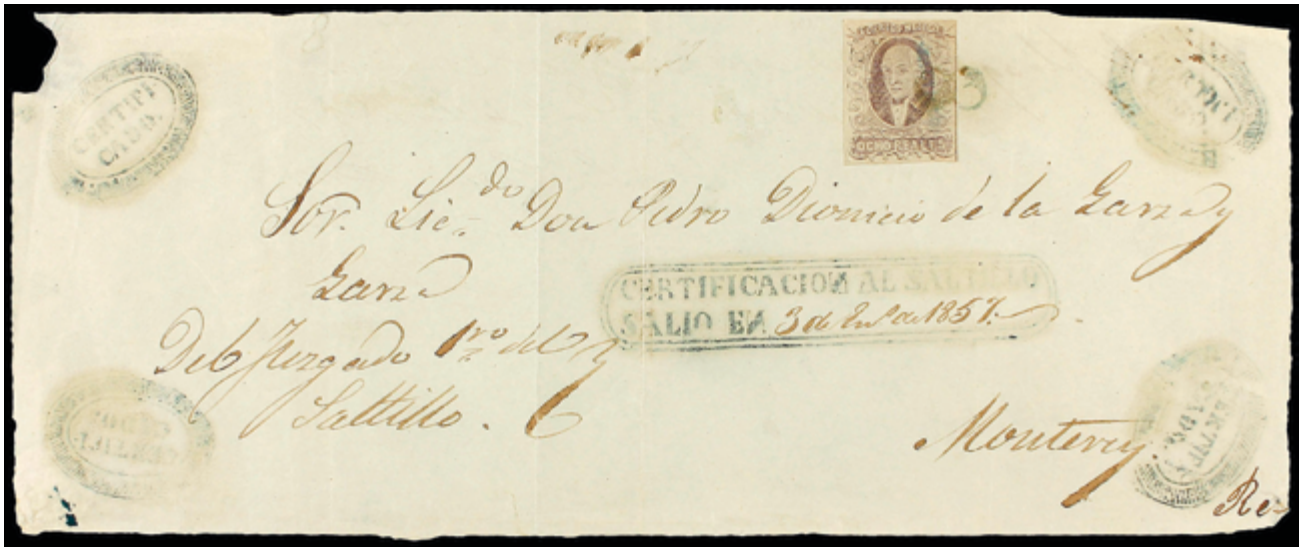 CERTIFI
CADO.
CORREOS MEJICO
OCHO REALES
Sor. Licdo Don Pedro Dionicio de la Garza y
Garza
CERTIFICACION AL SALTILLO
SALIO EN 3 de Eno de 1857.
Del Juzgado 1ro del
Saltillo.
CERTIFI
CADO
CERTIFI
CADO.
Monterey.
Re